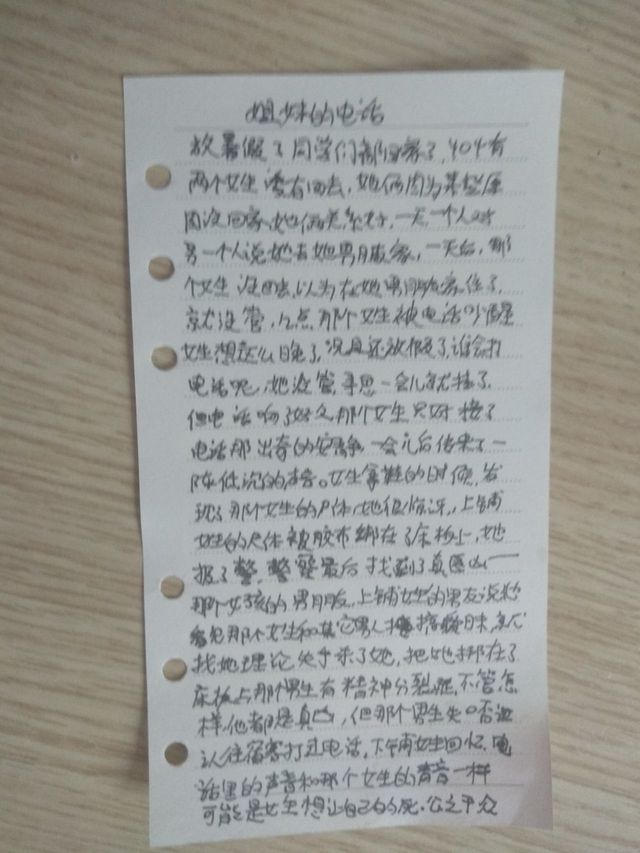 姐妹的电话
放暑假了同学们都回家了,404有
两个女生没有回去,她俩因为某些原
因没回家,她俩关系好,一天一个人对
另一个人说她去她男朋友家,一天后,那
个女生没回去,以为在她男朋友家住了,
就没管,几点,那个女生被电话吵醒
女生想这么晚了,况且还放假了谁会打
电话呢,她没管寻思一会儿就挂了
但电话响了好久那个女生只好接了
电话那出奇的安静一会儿后传来了一
阵低沉的声音。女生拿鞋的时候,发
现了那个女生的尸体,她很惊讶,上铺
女生的尸体被胶布绑在了床板上,她
报了警,警察最后找到了真凶——
那个女孩的男朋友,上铺女生的男友说
看见那个女生和其它男人搂搂抱抱,就
找她理论,失手杀了她,把她绑在了
床板上那个男生有精神分裂症,不管怎
样,他都是真凶,但那个男生矢口否认
认往宿舍打过电话,下铺女生回忆,电
话里的声音和那个女生的声音一样
可能是女生想让自己的死,公之于众